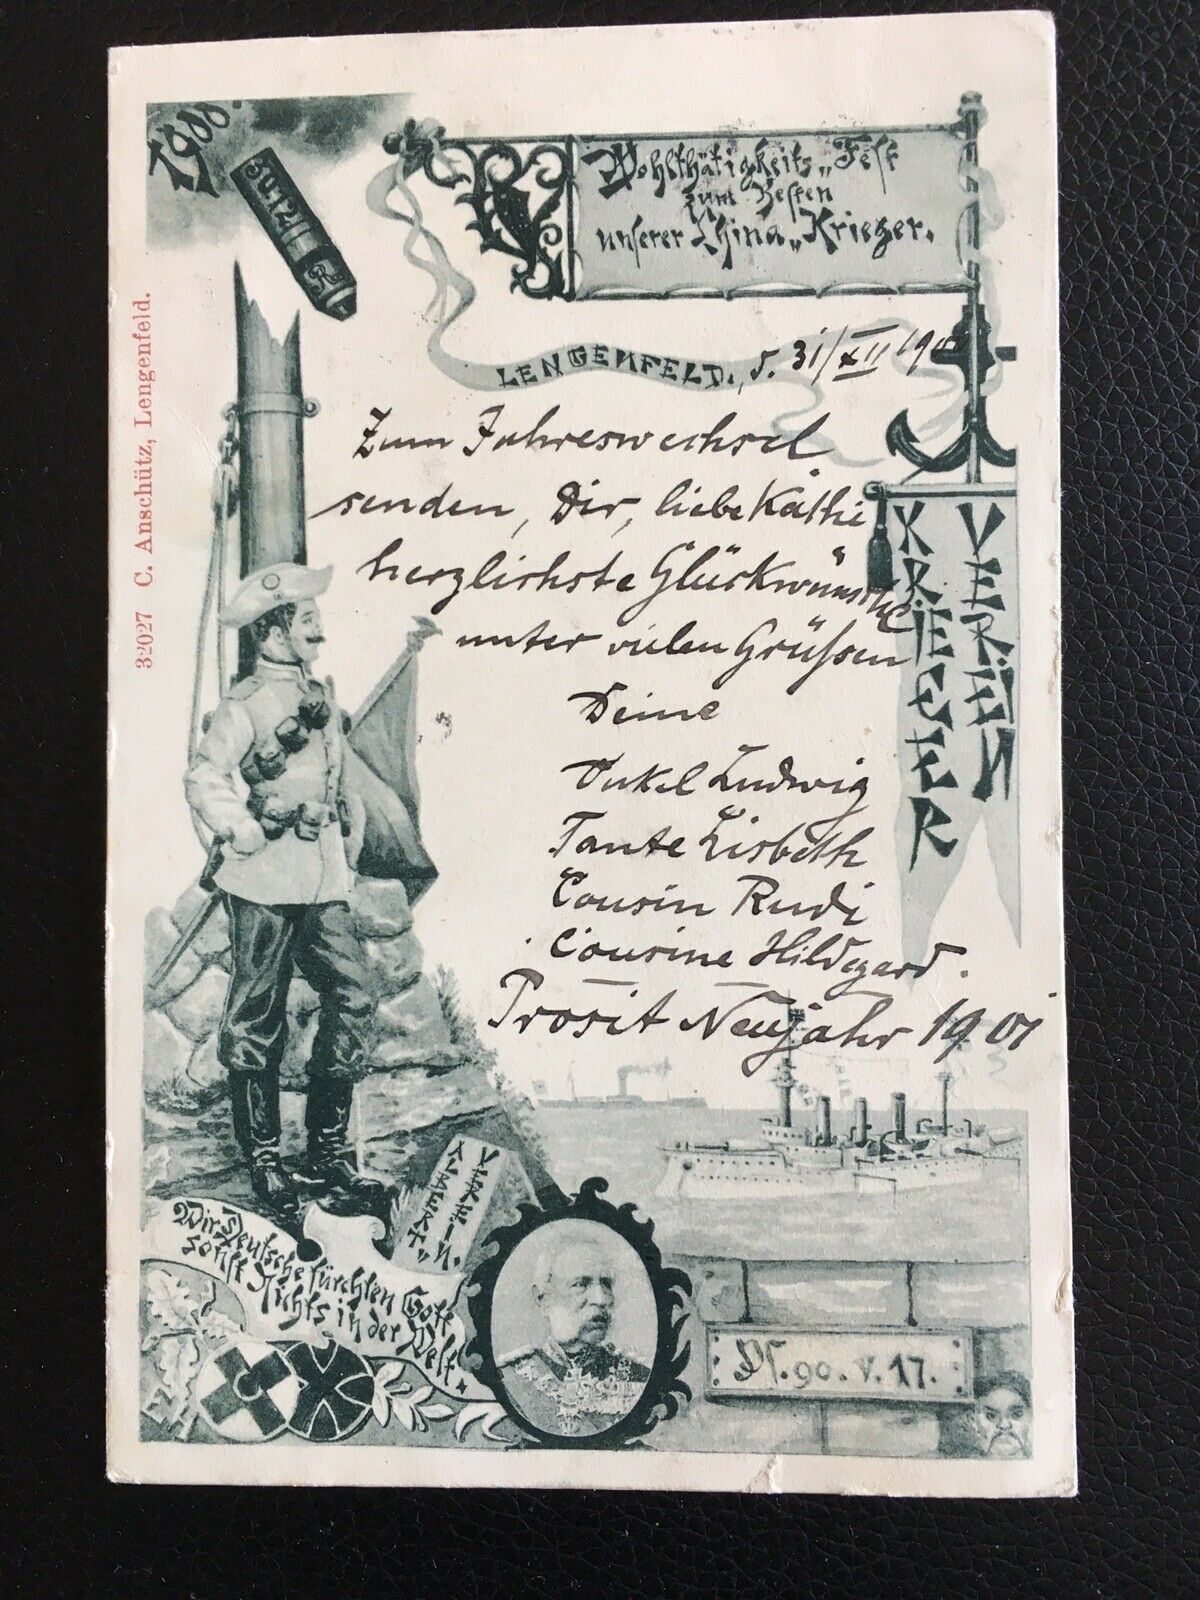 1900.
30.12.
Wohlthätigkeits„Fest
zum Besten
unserer China„Krieger.
LENGENFELD., d. 31/XII 190
Zum Jahreswechsel
senden, Dir, liebe Käthe
herzlichste Glückwünsche
unter vielen Grüßen
Deine
Onkel Ludwig
Tante Lisbeth
Cousin Rudi
Cousine Hildegard.
Prosit Neujahr 1901
VEREIN
KRIEGER
32027 C. Anschütz, Lengenfeld.
VEREIN.
ALBERT„
Wir Deutsche fürchten Gott
sonst Nichts in der Welt.
N. 90. V. 17.